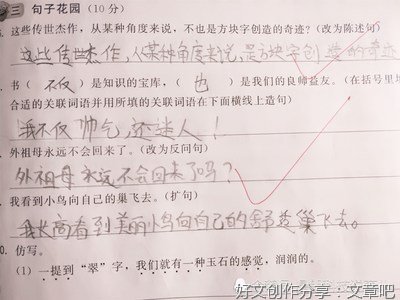 三 句子花园（10分）
这些传世杰作，从某种角度来说，不也是方块字创造的奇迹？（改为陈述句）
这些传世杰作，从某种角度来说，是方块字创造的奇迹
书（不仅）是知识的宝库，（也）是我们的良师益友。（在括号里填
合适的关联词语并用所填的关联词语在下面横线上造句）
我不仅帅气，还迷人！
外祖母永远不会回来了。（改为反问句）
外祖母永远不会回来了吗？
我看到小鸟向自己的巢飞去。（扩句）
高看到美丽小鸟向自己的舒适巢飞去。
仿写。
（1）一提到“翠”字，我们就有一种玉石的感觉，润润的。
好文创作分享·文章吧